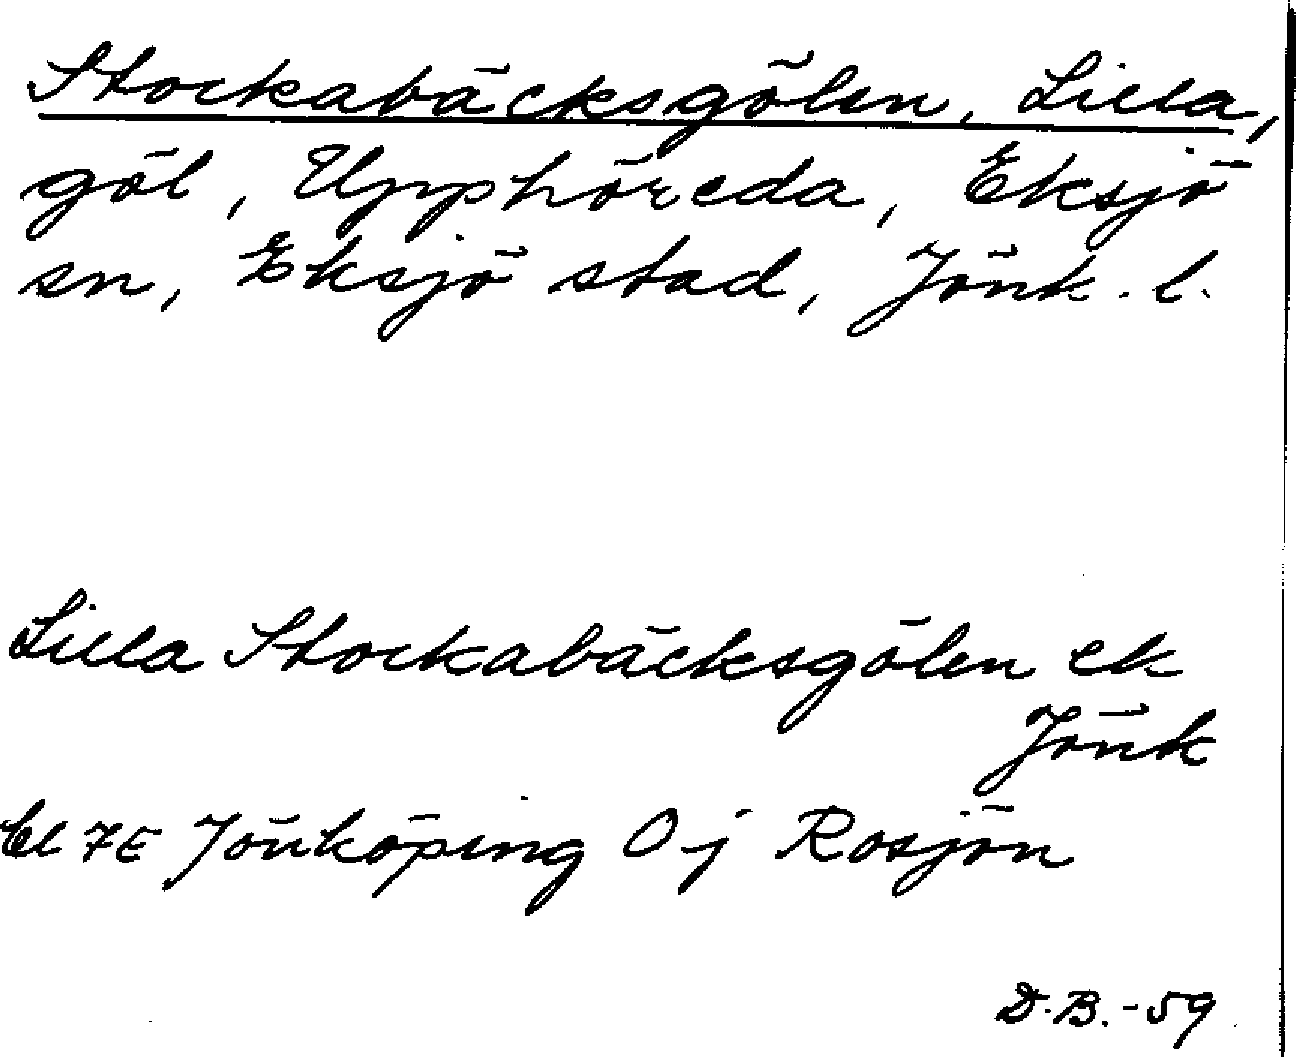 Stockabäcksgölen, Lilla,
göl, Upphöreda, Eksjö
sn, Eksjö stad, Jönk. l.
Lilla Stockabäcksgölen ek
Jönk
bl 7E Jönköping 0j Rosjön
D.B.-59